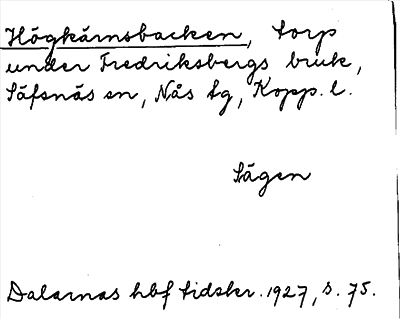 Högkärnsbacken, torp
under Fredriksbergs bruk,
Säfsnäs sn, Nås tg, Kopp. l.
Sägen
Dalarnas hbf tidskr. 1927, s. 75.